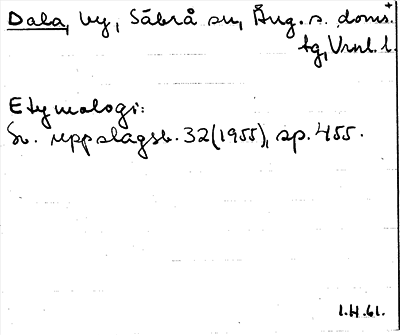 Dala, by, Säbrå sn, Ång. s. doms.
tg, Vrnl. l.
Etymologi:
Sv. uppslagsb. 32 (1955), sp. 455.
1.H.61.